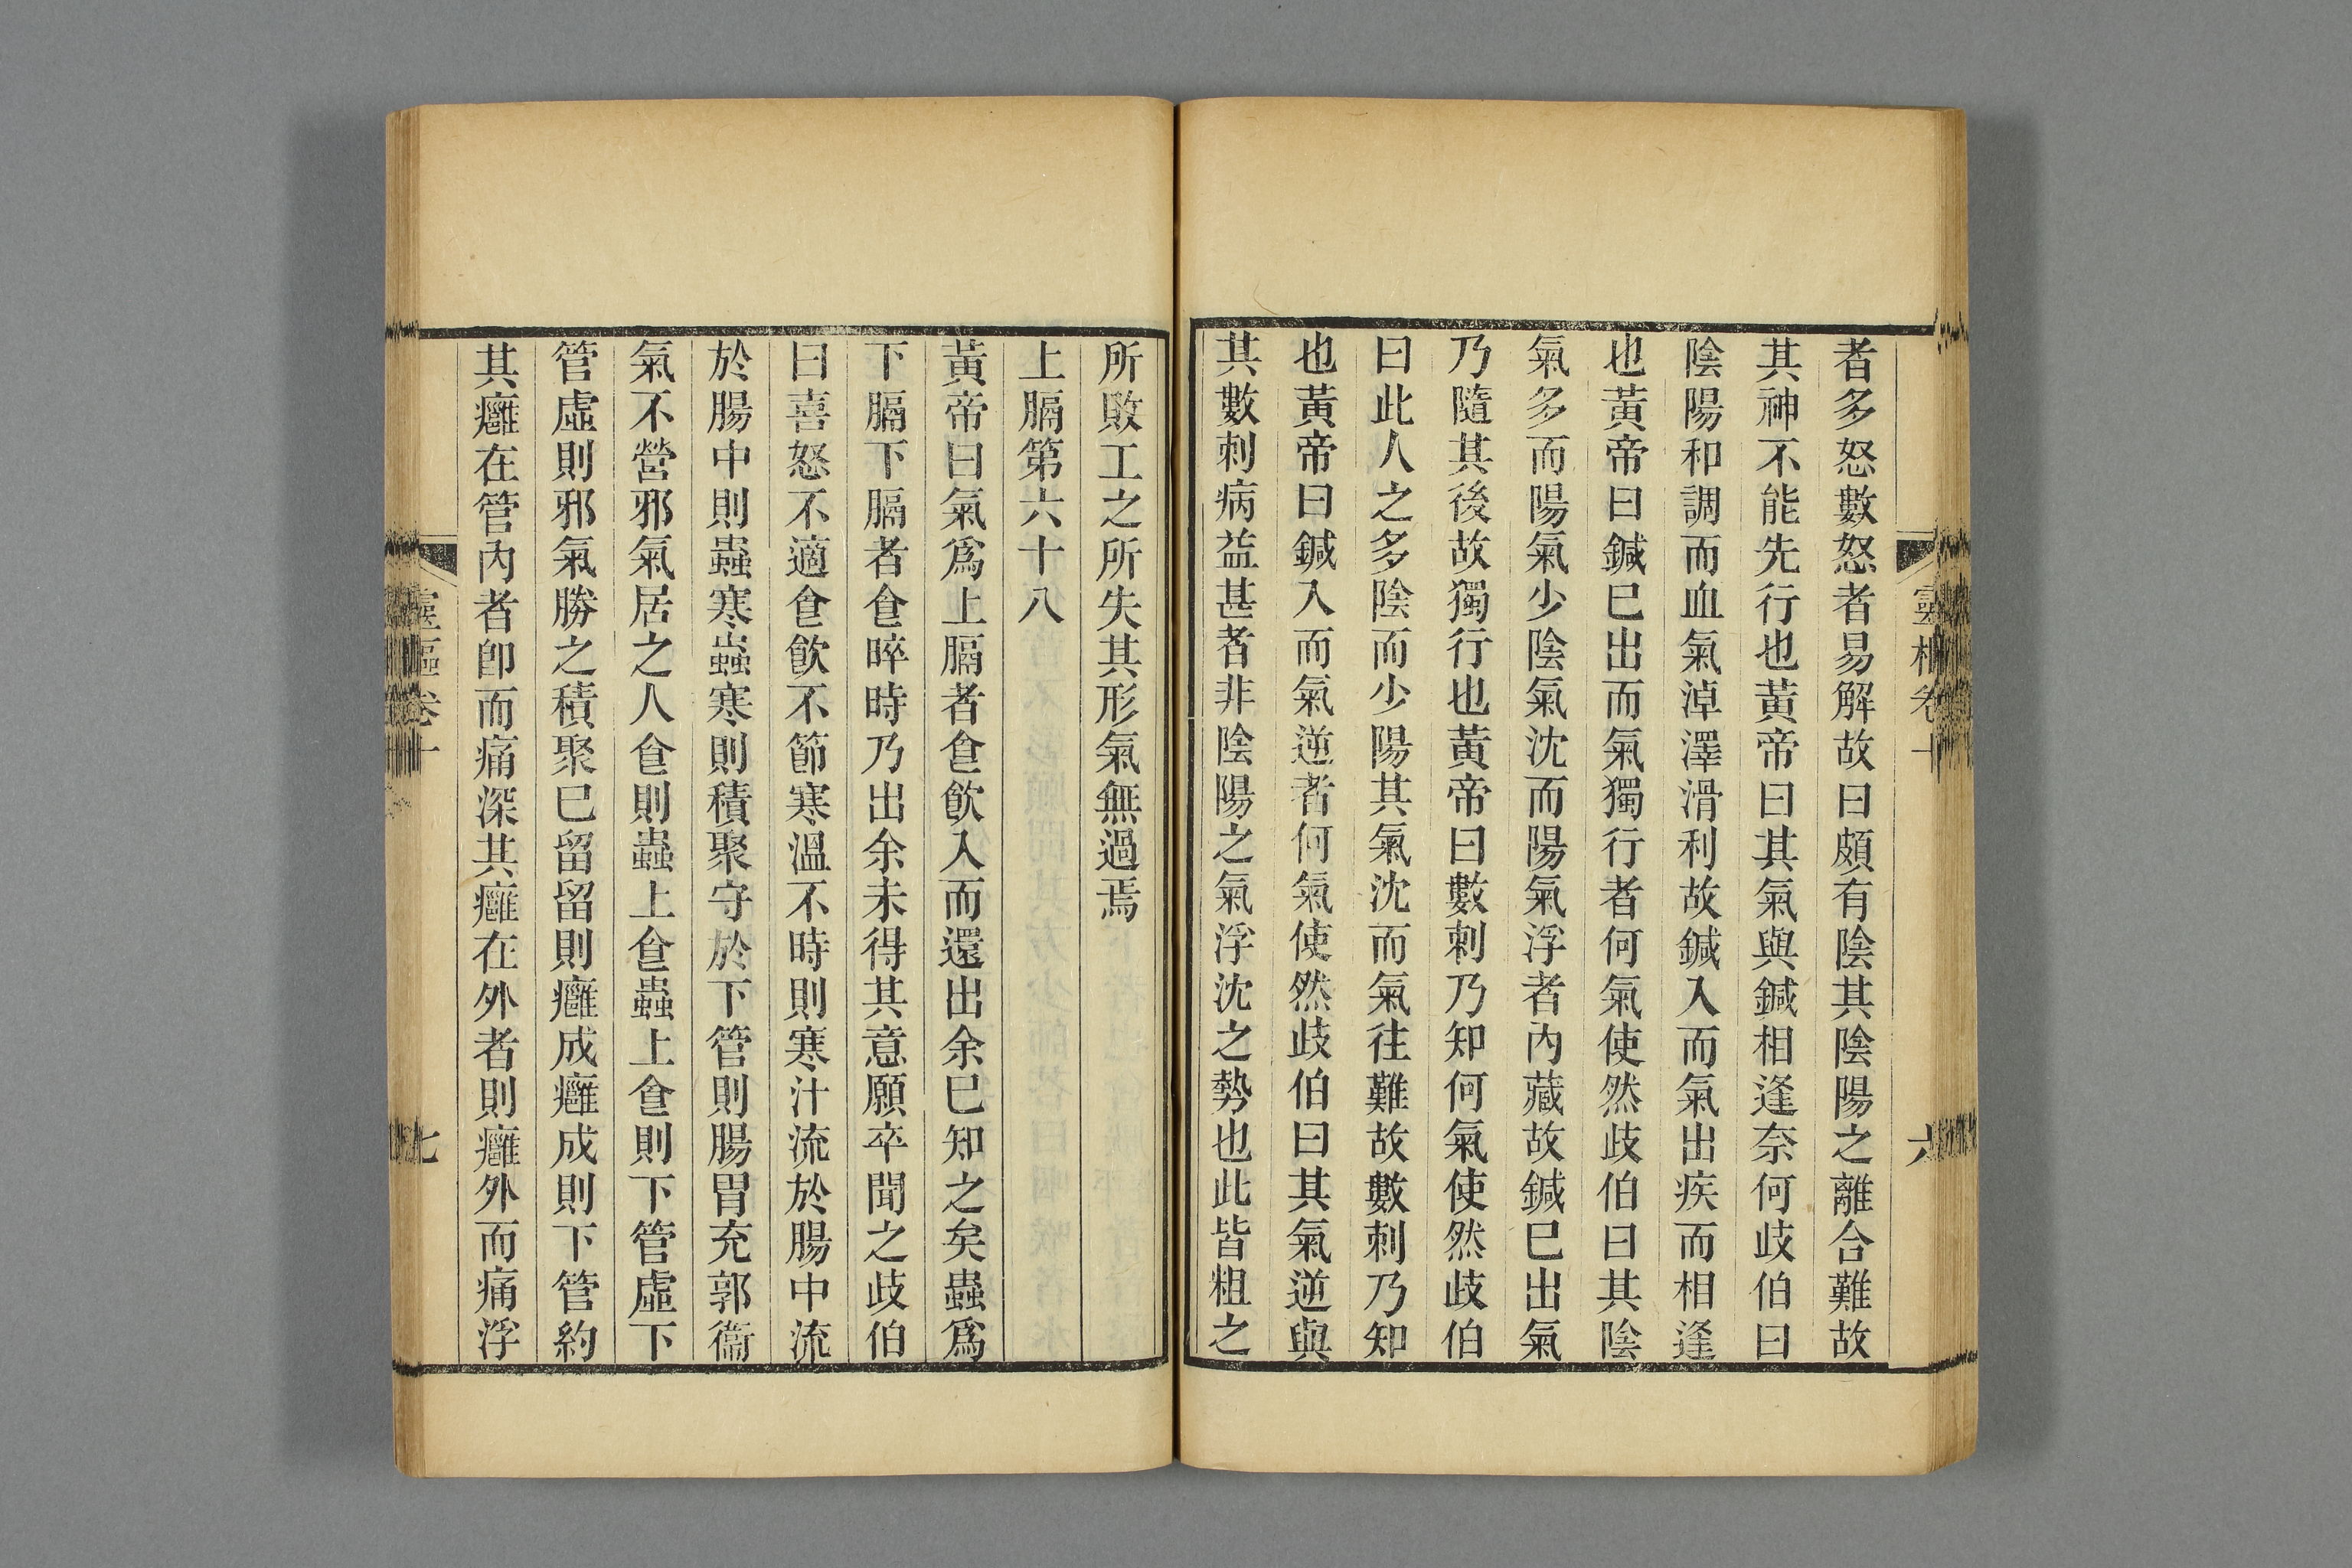 靈樞卷十
六
者多怒數怒者易解故曰頗有陰其陰陽之離合難故
其神不能先行也黃帝曰其氣與鍼相逢奈何歧伯曰
陰陽和調而血氣淖澤滑利故鍼入而氣出疾而相逢
也黃帝曰鍼已出而氣獨行者何氣使然歧伯曰其陰
氣多而陽氣少陰氣沈而陽氣浮者內藏故鍼已出氣
乃隨其後故獨行也黃帝曰數刺乃知何氣使然歧伯
曰此人之多陰而少陽其氣沈而氣往難故數刺乃知
也黃帝曰鍼入而氣逆者何氣使然歧伯曰其氣逆與
其數刺病益甚者非陰陽之氣浮沈之勢也此皆粗之
所敗工之所失其形氣無過焉
上膈第六十八
黃帝曰氣爲上膈者食飲入而還出余已知之矣蟲爲
下膈下膈者食晬時乃出余未得其意願卒聞之歧伯
曰喜怒不適食飲不節寒溫不時則寒汁流於腸中流
於腸中則蟲寒蟲寒則積聚守於下管則腸胃充郭衞
氣不營邪氣居之人食則蟲上食蟲上食則下管虛下
管虛則邪氣勝之積聚已留留則癰成癰成則下管約
其癰在管內者卽而痛深其癰在外者則癰外而痛浮
靈樞卷十
七